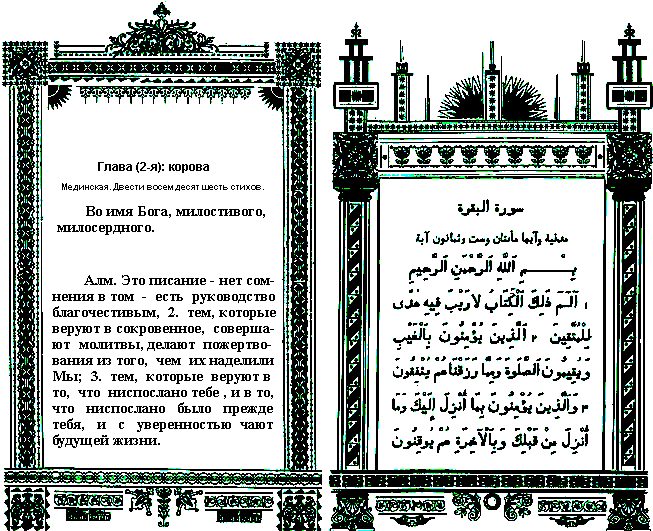 Глава (2-я): корова
Мединская. Двести восемдесят шесть стихов.
Во имя Бога, милостивого,
милосердного.
Алм. Это писание - нет сом-
нения в том - есть руководство
благочестивым, 2. тем, которые
веруют в сокровенное, соверша-
ют молитвы, делают пожертво-
вания из того, чем их наделили
Мы; 3. тем, которые веруют в
то, что ниспослано тебе , и в то,
что ниспослано было прежде
тебя, и с уверенностью чают
будущей жизни.
سورة البقرة
مدنية وآيها مأتتان وست وثمانون آية
بِسْــــمِ اللَّهِ الرَّحْمَنِ الرَّحِيمِ
١ الَـمَ ذَلِكَ الْكِتَابُ لَا رَيْبَ فِيهِ هُدًى
لِلْمُتَّقِينَ ٢ الَّذِينَ يُؤْمِنُونَ بِالْغَيْبِ
وَيُقِيمُونَ الصَّلَوةَ وَمِمَّا رَزَقْنَاهُمْ يُنْفِقُونَ
٣ وَالَّذِينَ يُؤْمِنُونَ بِمَا أُنْزِلَ إِلَيْكَ وَمَا
أُنْزِلَ مِنْ قَبْلِكَ وَبِالْآخِرَةِ هُمْ يُوقِنُونَ